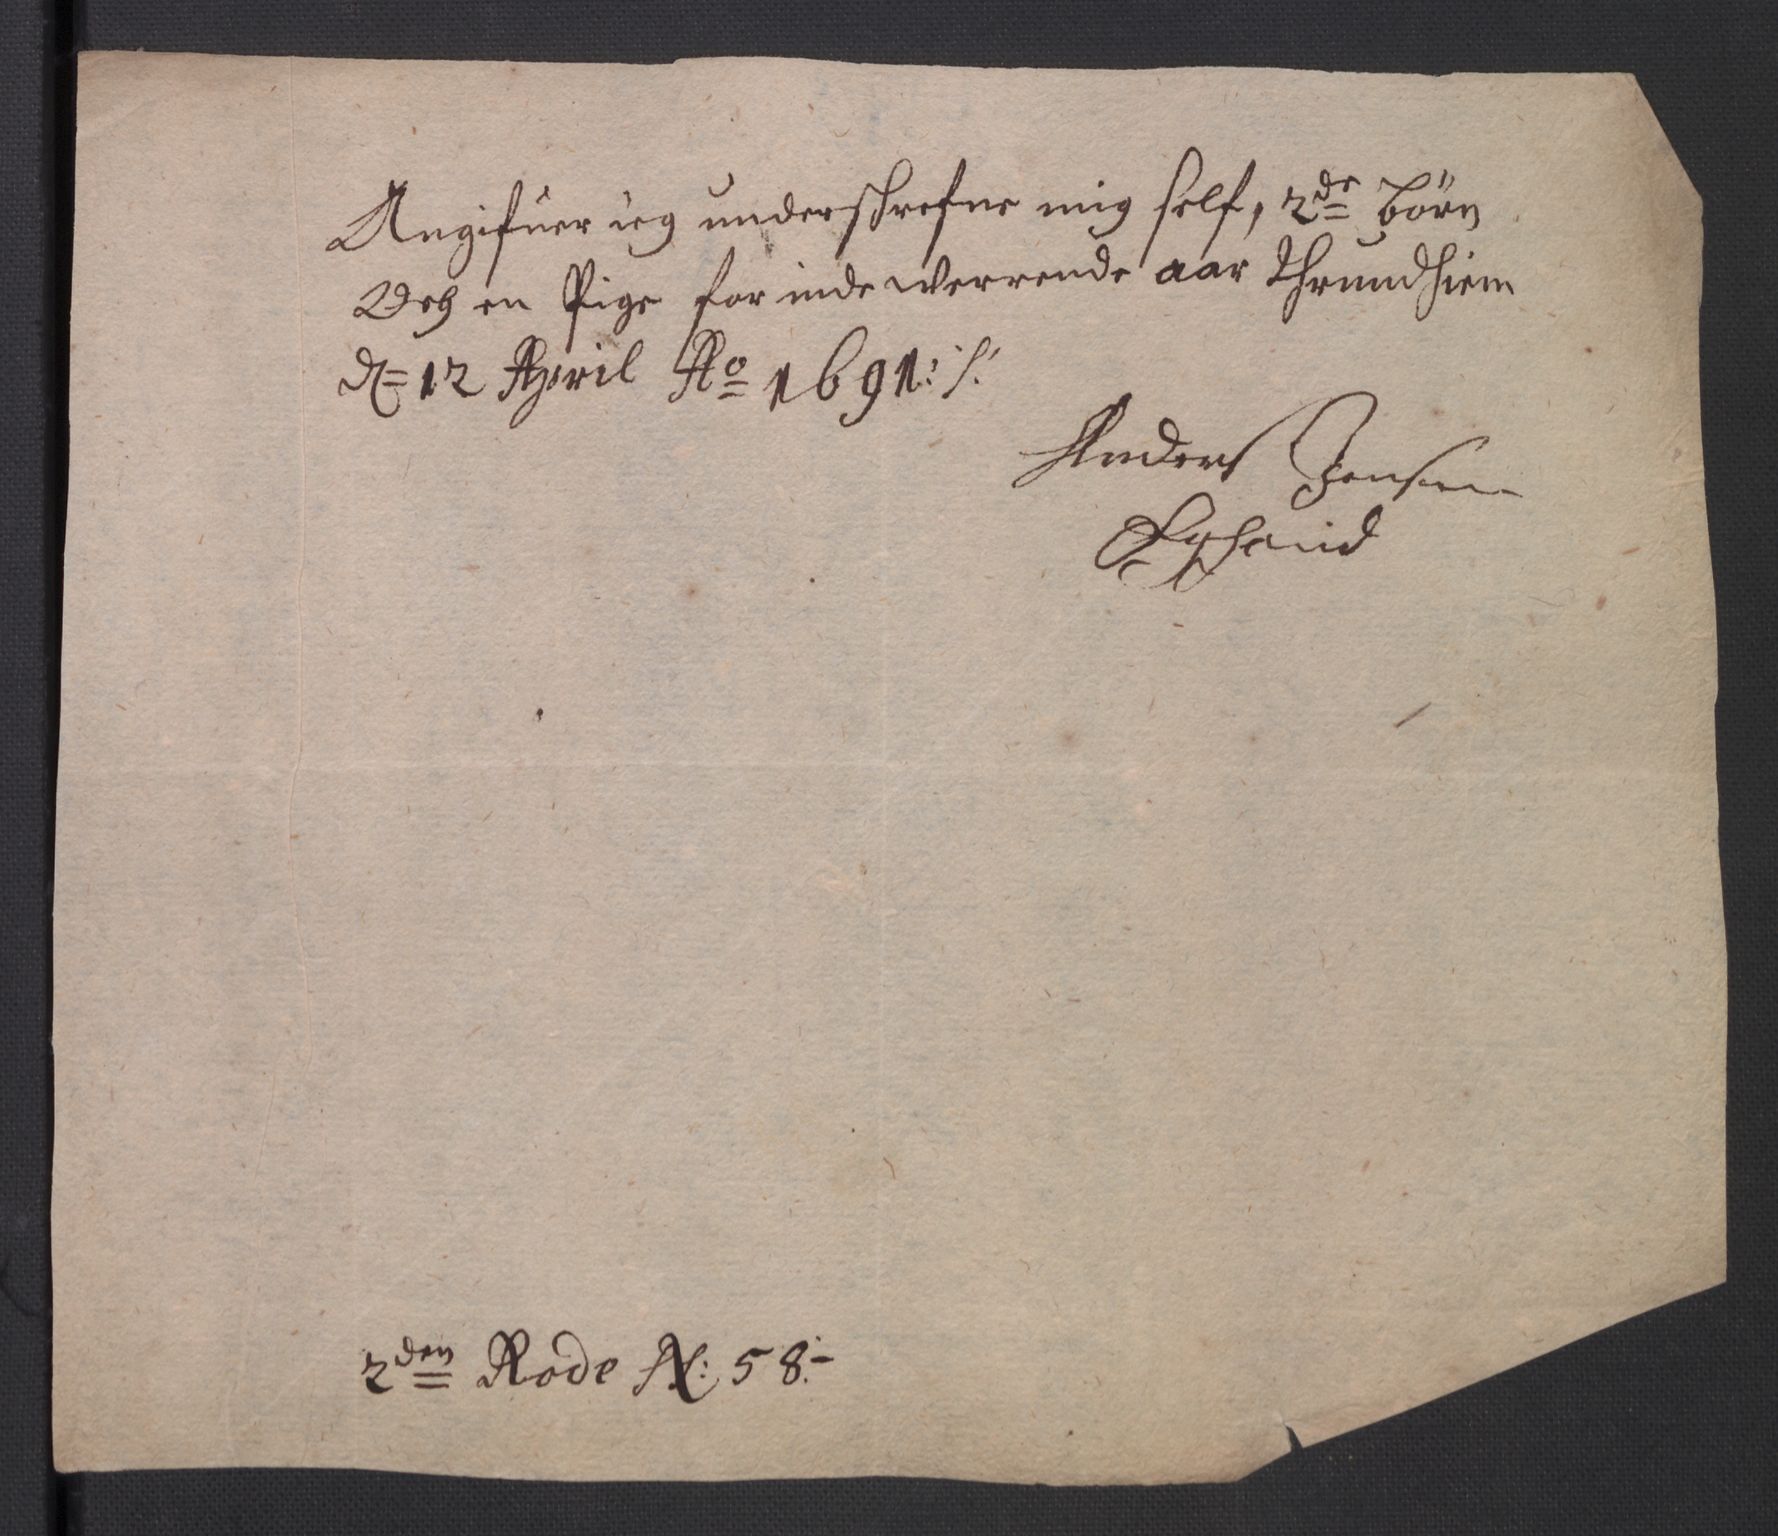 Angifuer ieg underschrefne mig self, 2de börn
Och en Pige for inde werrende aar Thrundhiem
d= 12 April Ao 1691:/:
Anders Jensen
2den Rode N: 58:-